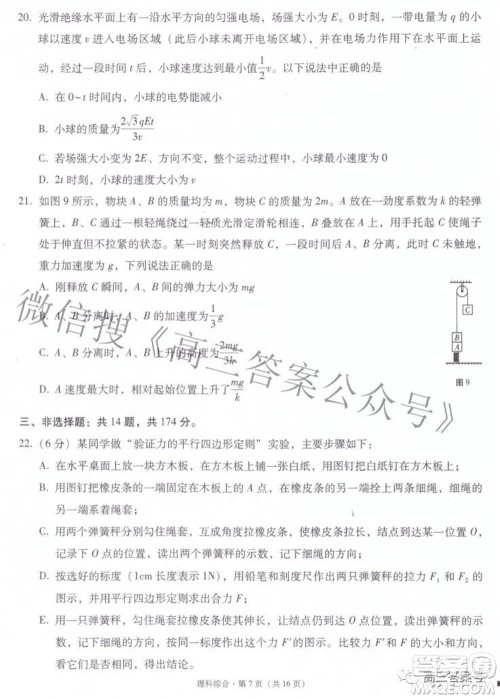 20. 光滑绝缘水平面上有一沿水平方向的匀强电场，场强大小为 E。0 时刻，一带电量为 q 的小
球以速度 v 进入电场区域（此后小球未离开电场区域），并在电场力作用下在水平面上运
动，经过一段时间 t 后，小球速度达到最小值 1/2 v。以下说法中正确的是
A. 在 0~t 时间内，小球的电势能减小
B. 小球的质量为 2√3qEt/3v
C. 若场强大小变为 2E、方向不变，整个运动过程中，小球最小速度为 0
D. 2t 时刻，小球的速度大小为 v
21. 如图 9 所示，物块 A、B 的质量均为 m，物块 C 的质量为 2m。A 放在一劲度系数为 k 的轻弹
簧上，B、C 通过一根轻绳绕过一轻质光滑定滑轮相连，B 叠放在 A 上，用手托起 C 使绳子
处于伸直但不拉紧的状态。某一时刻突然释放 C，一段时间后 A、B 分离，此时 C 未触地，
重力加速度为 g，下列说法正确的是
A. 刚释放 C 瞬间，A、B 间的弹力大小为 mg
B. A、B 分离时，A、B 的加速度为 1/3 g
C. A、B 分离时，A、B 上升的高度为 2mg/3k
D. A 速度最大时，相对起始位置上升了 mg/k
C
B
A
图 9
三、非选择题：共 14 题，共 174 分。
22.（6 分）某同学做“验证力的平行四边形定则”实验，主要步骤如下：
A. 在水平桌面上放一块方木板，在方木板上铺一张白纸，用图钉把白纸钉在方木板上；
B. 用图钉把橡皮条的一端固定在木板上的 A 点，在橡皮条的另一端拴上两条细绳，细绳的
另一端系着绳套；
C. 用两个弹簧秤分别勾住绳套，互成角度拉橡皮条，使橡皮条拉长，结点到达某一位置 O，
记录下 O 点的位置，读出两个弹簧秤的示数，记下细绳的方向；
D. 按选好的标度（1cm 长度表示 1N），用铅笔和刻度尺作出两只弹簧秤的拉力 F₁ 和 F₂ 的
图示，并用平行四边形定则求出合力 F；
E. 用一只弹簧秤，勾住绳套使其伸长，让结点仍到达 O 点位置，读出弹簧秤的示数，记下
细绳的方向，按同一标度作出这个力 F′的图示。比较力 F′和 F 的大小和方向，看它们
是否相同。
理科综合·第 7 页（共 16 页）
微信搜《高三答案公众号》
高三答案号